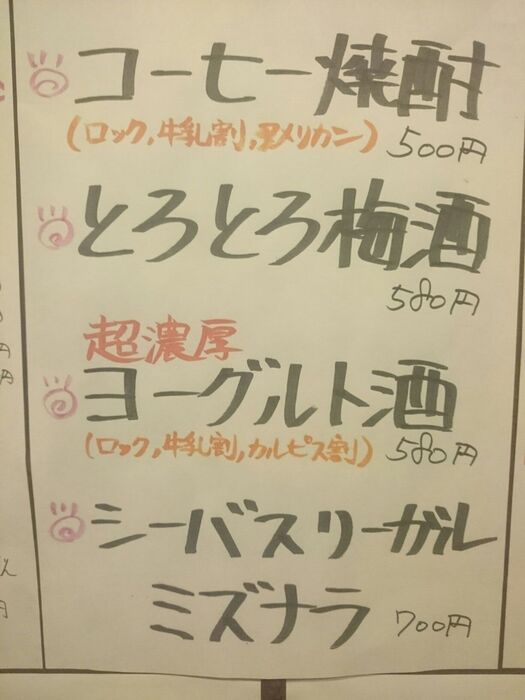 コーヒー焼酎
(ロック,牛乳割,アメリカン) 500円
とろとろ梅酒
580円
超濃厚
ヨーグルト酒
(ロック,牛乳割,カルピス割) 580円
シーバスリーガル
ミズナラ 700円